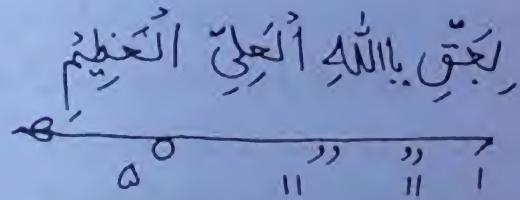 بِحَقِّ يا اللهِ اُلعَلِيِّ الُعَظِيِمِ
۱ ۱۱ ۱۱ ۵